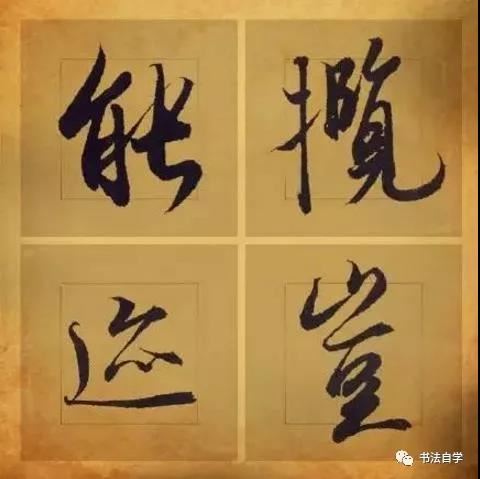 能 攬
迹 豈
书法自学